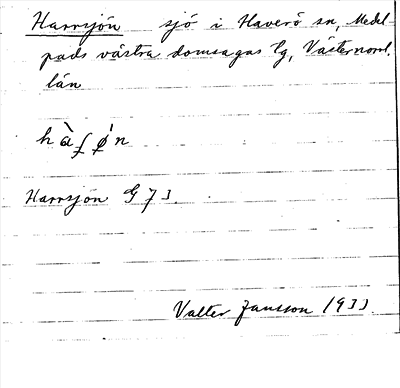 Harrsjön sjö i Haverö sn, Medel-
pads västra domsagas tg, Västernorrl.
län
Harrsjön G 73.
Valter Jansson 1933.